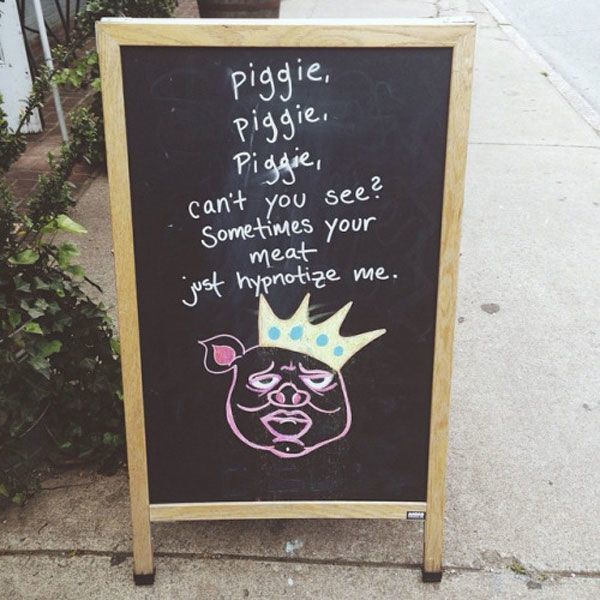 piggie,
piggie,
Piggie,
can't you see?
Sometimes your
meat
just hypnotize me.